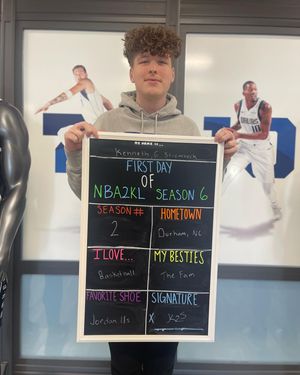 MY NAME IS...
Kenneth G
FIRST DAY
OF
NBA2KL SEASON 6
SEASON #
2
HOMETOWN
Durham, NC
I LOVE...
Basketball
MY BESTIES
The Fam
FAVORITE SHOE
Jordan 11s
SIGNATURE
X
10